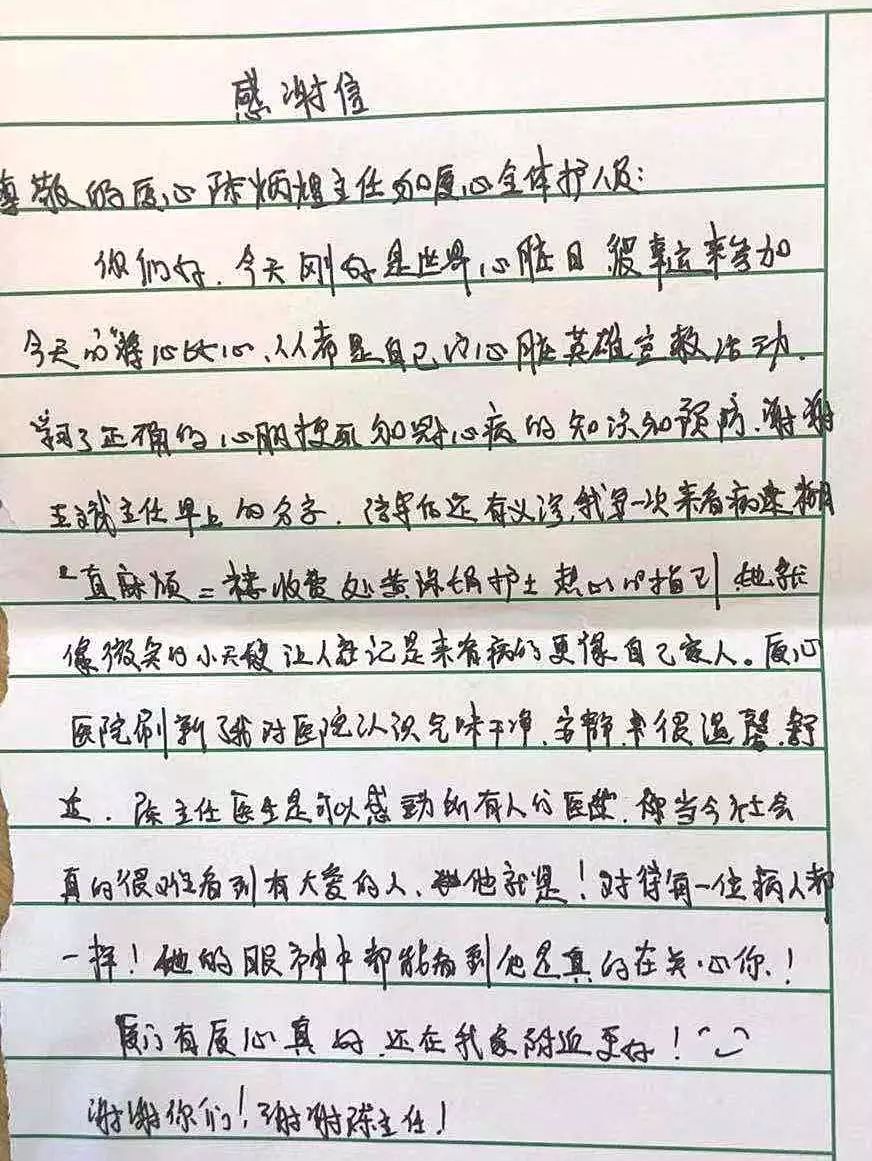 感谢信
尊敬的厦心陈炳煌主任和厦心全体护人员:
你们好.今天刚好是世界心脏日 很幸运来参加
今天的"将心比心、人人都是自己的心脏英雄宣教活动.
学习了正确的心肌梗死和冠心病的知识和预防、谢谢
主任早上的名字. 还有义诊,我第一次来看病
真麻烦 收费处黄 护士热心的指引 她就
像微笑的小天使让人忘记是来看病的更像自己家人。厦心
医院刷新了我对医院认识气味干净、安静 很温馨、舒
适. 陈主任医生是可以感动所有人的医生. 当今社会
真的很难看到有大爱的人、他就是!对待每一位病人都
一样!他的眼神中都能看到他是真的在关心你!
厦门有厦心真好.还在我家附近更好!
谢谢你们!谢谢陈主任!